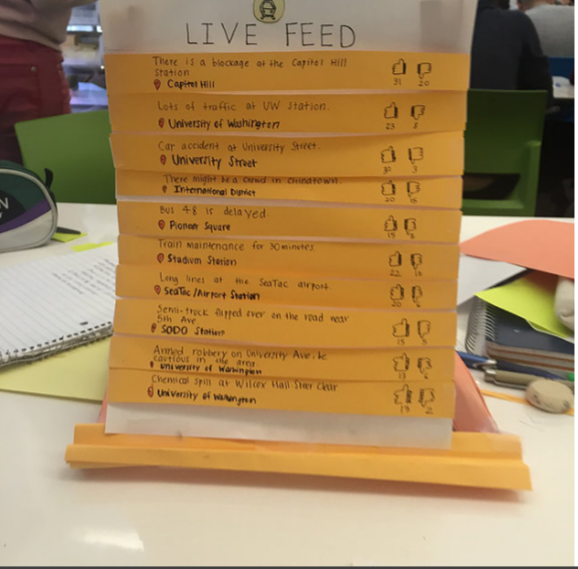 LIVE FEED
There is a blockage at the Capitol Hill
Station
Capitol Hill
31 20
Lots of traffic at UW Station.
University of Washington
23 8
Car accident at University Street.
University Street
30 3
There might be a crowd in Chinatown.
International District
20
Bus 48 is delayed
Pioneer Square
15
Train maintenance for 30 minutes
Stadium Station
22
Long lines at the SeaTac airport.
SeaTac/Airport Station
20
Semi-truck tipped over on the road near
5th Ave
SODO Station
15
Armed robbery on University Ave. be
cautious in the area
University of Washington
Chemical spill at Hall Steer Clear
University of Washington